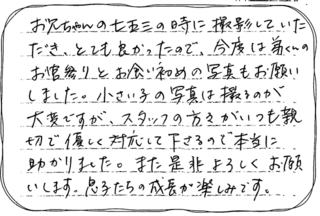 お兄ちゃんの七五三の時に撮影していた
だき、とても良かったので、今度は弟くんの
お宮参りとお食い初めの写真もお願い
しました。小さい子の写真は撮るのが
大変ですが、スタッフの方々がいつも親
切で優しく対応して下さるので本当に
助かりました。また是非よろしくお願
いします。息子たちの成長が楽しみです。